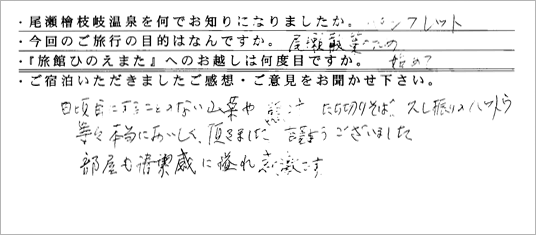 ・尾瀬檜枝岐温泉を何でお知りになりましたか。 パンフレット
・今回のご旅行の目的はなんですか。 尾瀬散策のため
・『旅館ひのえまた』へのお越しは何度目ですか。 始めて
・ご宿泊いただきましたご感想・ご意見をお聞かせ下さい。
日頃口にすることのない山菜や 熊汁 たち切りそば。久し振りのハットウ
等々本当においしく、頂きました ございました
部屋も清潔感に溢れ